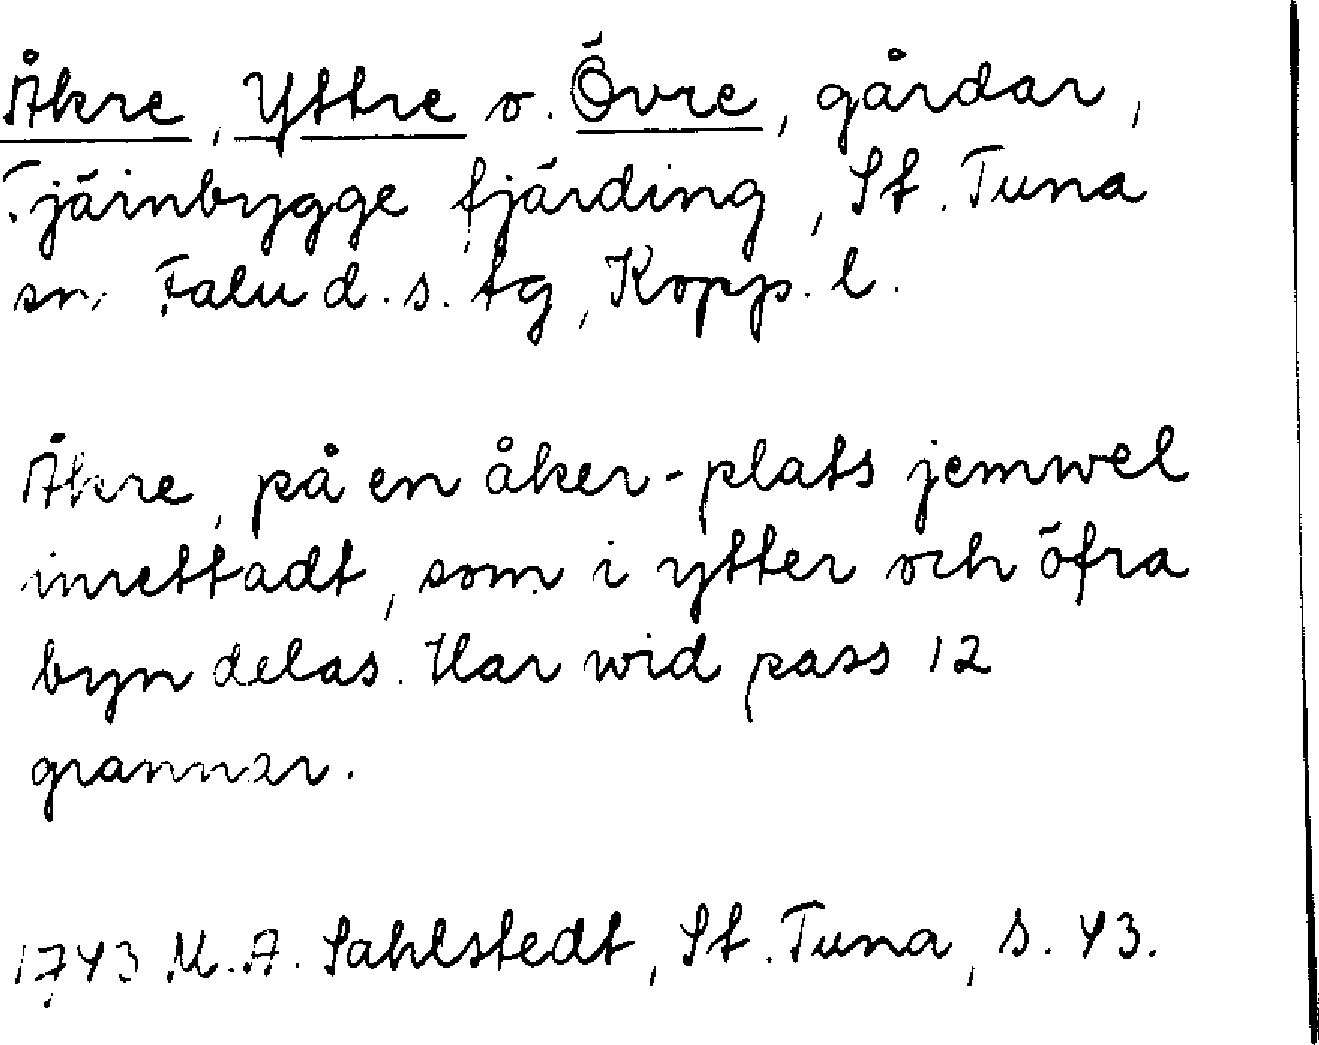 Åkre, Yttre o. Övre, gårdar,
Tjärnbygge fjärding, St. Tuna
sn, Falu d.s. tg, Kopp. l.
Åkre, på en åker-plats jemwel
inrettadt, som i ytter och öfra
byn delas. Har wid pass 12
grannar.
1743 M.A. Sahlstedt, St. Tuna, s. 43.